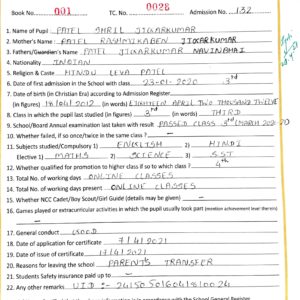 Book No. 001 TC. No. 0028 Admission No. 132
1. Name of Pupil PATEL SHRIL JIGARKUMAR
2. Mother's Name PATEL RASHMIKABEN JIGARKUMAR
3. Father's/Guardian's Name PATEL JIGARKUMAR NAVINBHAI
4. Nationality INDIAN
5. Religion & Caste HINDU LEVA PATEL
6. Date of first admission in the School with class 23-01-2020 3rd
7. Date of birth (in Christian Era) according to Admission Register
(in figures) 18/04/2012 (in words) EIGHTEEN APRIL TWO THOUSAND TWELVE
8. Class in which the pupil last studied (in figures) 3rd (in words) THIRD
9. School/Board Annual examination last taken with result PASSED CLASS 3rd (MARCH 2020
10. Whether failed, if so once/twice in the same class?
11. Subjects studied/Compulsory 1) ENGLISH 2) HINDI
Elective 1) MATHS 2) SCIENCE 3) SST
12. Whether qualified for promotion to higher class if so to which class? 4th
13. Total No. of working days ONLINE CLASSES
14. Total No. of working days present ONLINE CLASSES
15. Whether NCC Cadet/Boy Scout/Girl Guide (details may be given)
16. Games played or extracurricular activities in which the pupil usually took part (mention achievement level therein)
17. General conduct GOOD
18. Date of application for certificate 7/4/2021
19. Date of issue of certificate 17/4/2021
20. Reasons for leaving the school PARENT'S TRANSFER
21. Students Safety insurance paid up to
22. Any other remarks UID :-